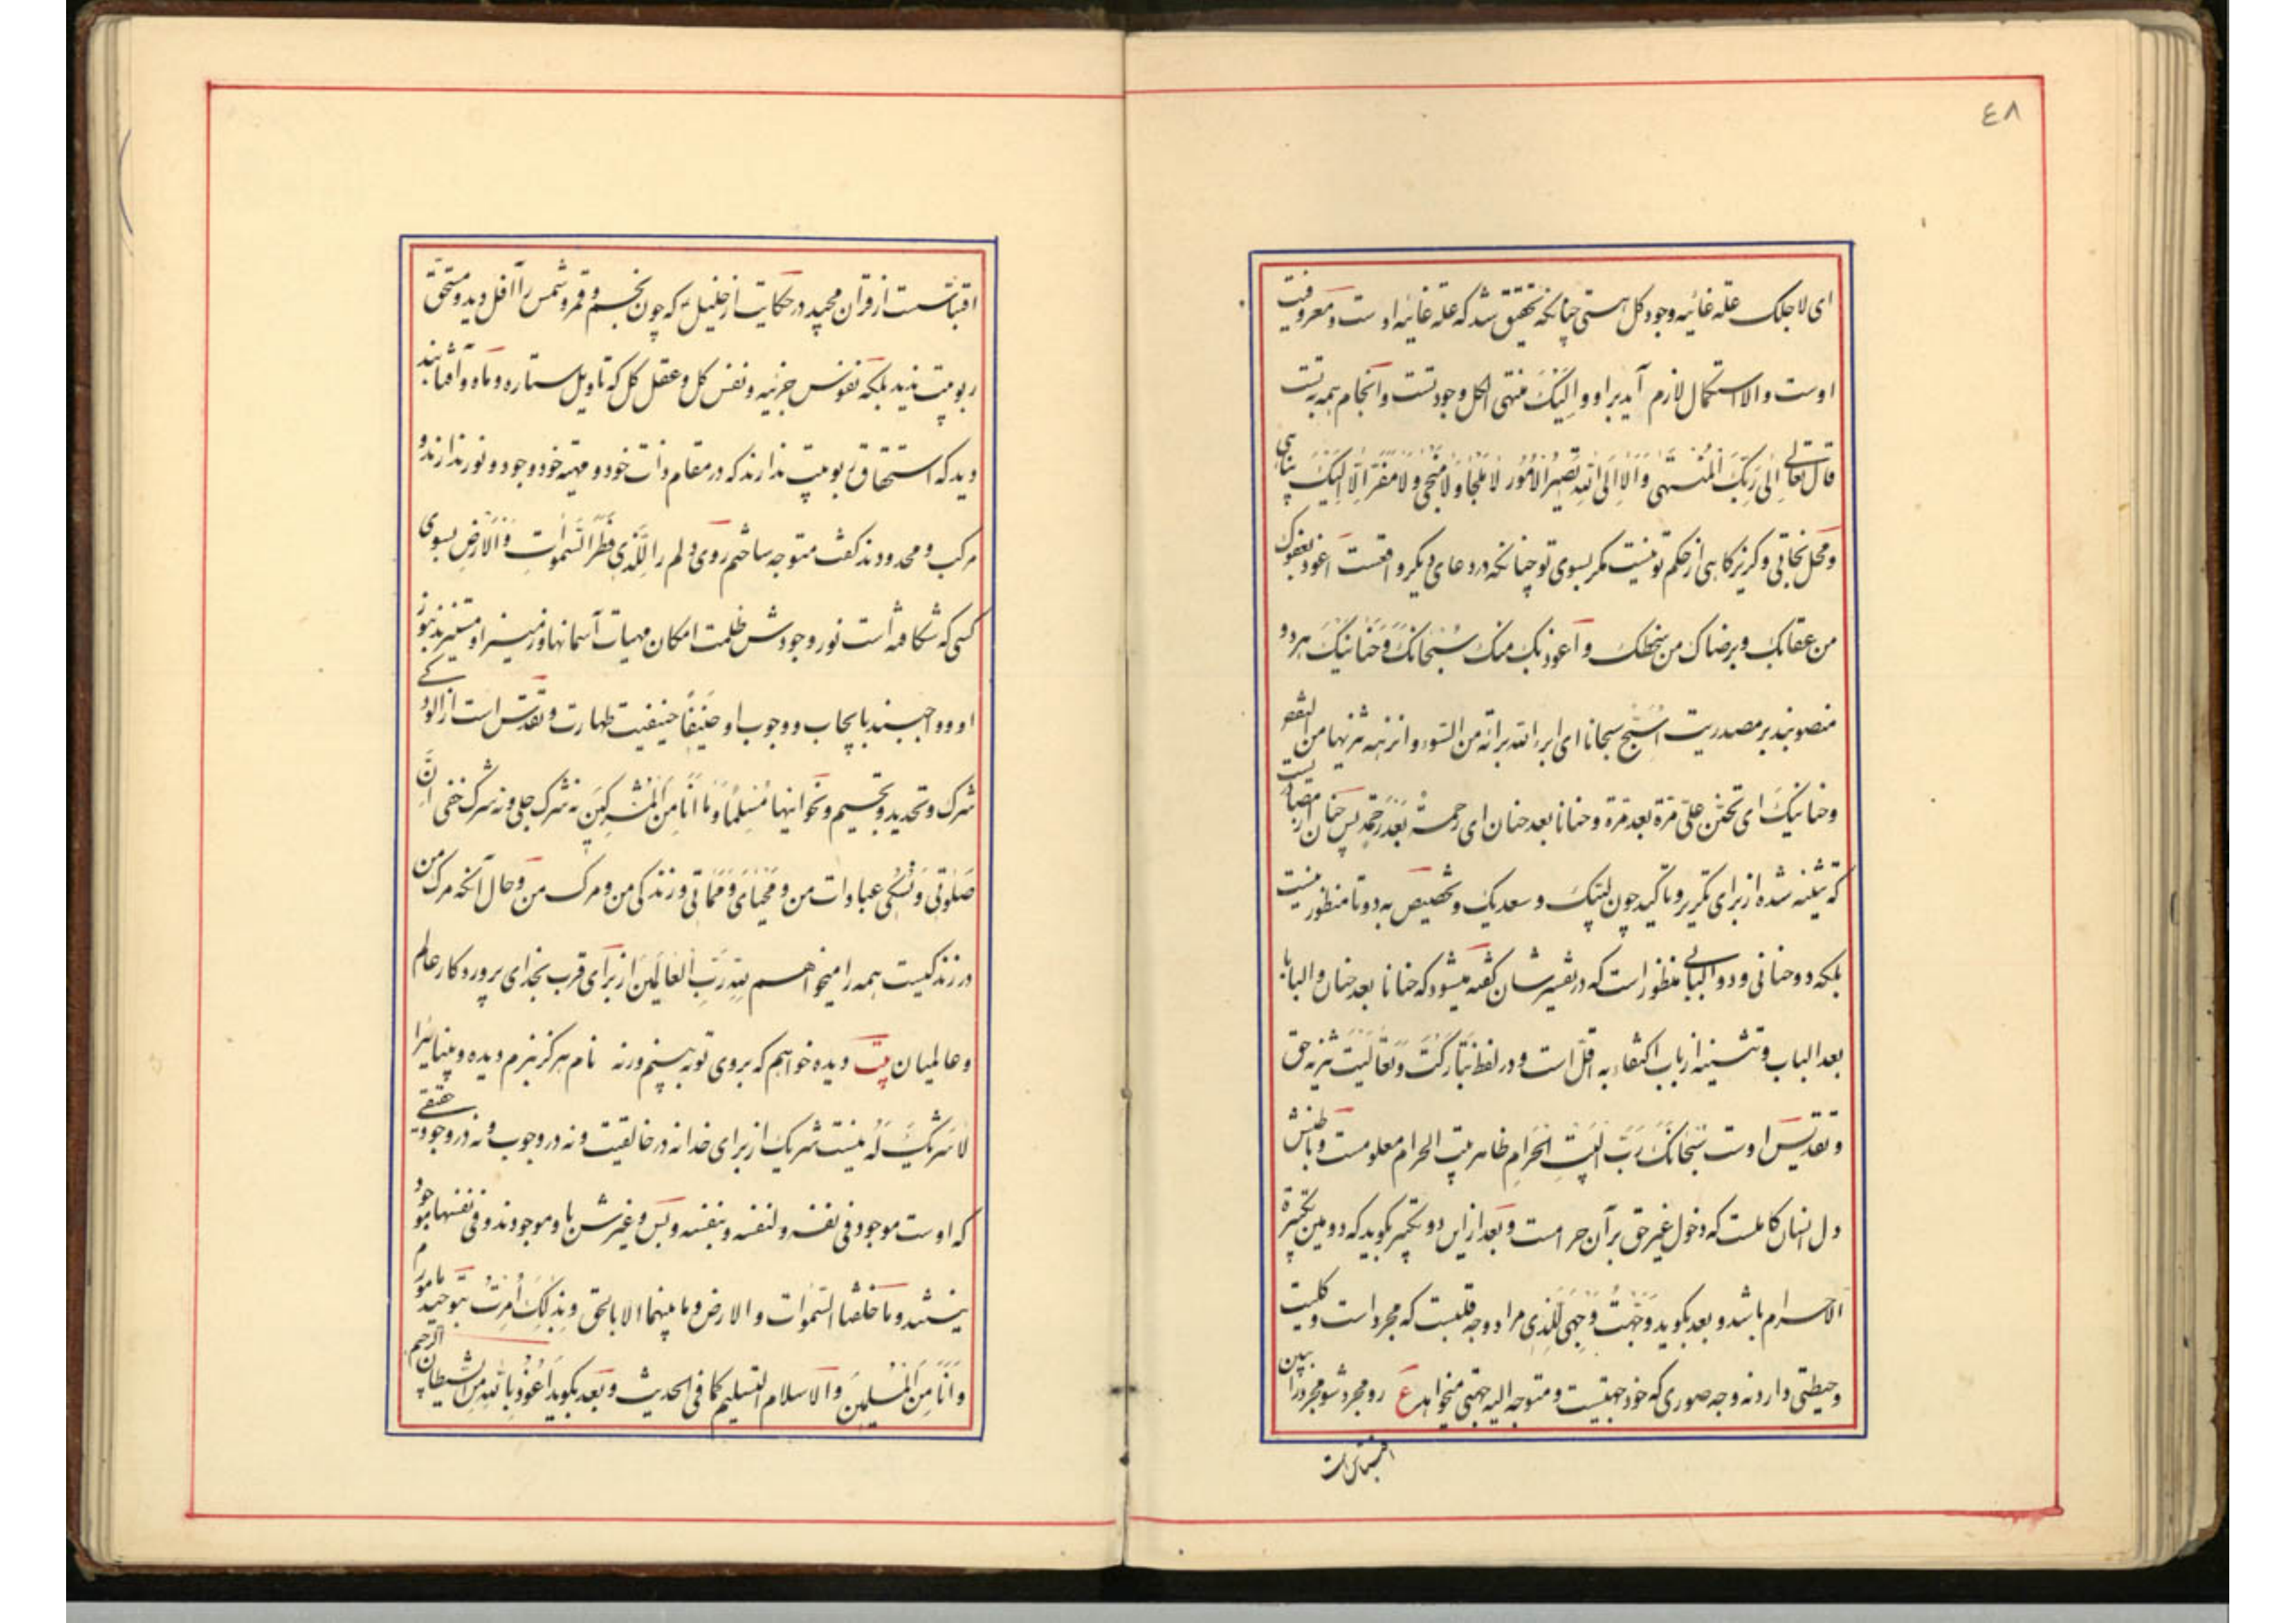 ٤٨
ای لاجلک علة غائیه وجود کل هستی چنانکه تحقیق شد که علة غائیه اوست و معروفیت
اوست والا استکمال لازم آید بر او و اِلَیْکَ منتهی الکل وجود تست و انجام همه به تست
قال تعالی اِلیٰ رَبِّکَ الْمُنْتَهیٰ وَاَلا اِلَی اللهِ تَصیرُ الاُمُور لا مَلْجَأَ وَلا مَنْجیٰ وَلا مَفَرَّ اِلّا اِلَیْکَ پناهی
و محل نجاتی و گریزگاهی از حکم تو نیست مگر بسوی تو چنانکه در دعای دیگر واقعست اعوذ بعفوک
من عقابک و برضاک من سخطک و اعوذ بک منک سُبْحانَکَ وَحَنانَیْکَ هر دو
منصوبند بر مصدریت اُسَبِّحُ سبحانا ای ابرء الله برائة من السّوء و انزهه تنزیها من النقص
و حنانیک ای تحنن علیّ مرّة بعد مرّة و حنانا بعد حنان ای رحمةً بعد رحمةٍ پس حنان از مصادریست
که تثنیه شده از برای تکریر و تاکید چون لبّیک و سعدیک و تخصیص به دو تا منظور نیست
بلکه دو حنانی و دو البابی منظور است که در تفسیرشان گفته میشود که حنانا بعد حنان و البابا
بعد الباب و تثنیه از باب اکتفاء به اقلّ است و در لفظ تَبارَکْتَ وَتَعالَیْتَ تنزیه حق
و تقدیس اوست سُبْحانَکَ رَبَّ الْبَیْتِ الْحَرامِ ظاهر بیت الحرام معلومست و باطنش
دل انسان کاملست که دخول غیر حق بر آن حرامست و بعد از این دو تکبیر بگوید که دومین تکبیرة
الاحرام باشد و بعد بگوید وَجَّهْتُ وَجْهِیَ لِلَّذی مراد وجه قلبست که مجرد است و کلیت
و حیطتی دارد نه وجه صوری که خود جهتیست و متوجه الیه جهتی میخواهد ع رو مجرد شو مجرد را ببین
اقتباس است
اقتباسست از قرآن مجید در حکایت از خلیل ع که چون نجم و قمر و شمس را آفل دید و مستحق
ربوبیت ندید بلکه نفوس جزئیه و نفس کل و عقل کل که تاویل ستاره و ماه و آفتابند
دید که استحقاق ربوبیت ندارند که در مقام ذات خود و مهیه خود وجود و نور ندارند و
مرکب و محدودند گفت متوجه ساختم روی دلم را لِلَّذی فَطَرَ السَّمٰواتِ وَالْاَرْضَ بسوی
کسی که شکافته است نور وجودش ظلمت امکان مهیات آسمانها و زمین را و مستنیرند بنور
او و واجبند بایجاب و وجوب او حَنیفاً حنیفیت طهارت و تقدس است از آلودگی
شرک و تحدید و تجسیم و نحو اینها مُسْلِماً وَما اَنَا مِنَ الْمُشْرِکینَ نه شرک جلی و نه شرک خفی اِنَّ
صَلٰوتی وَنُسُکی عبادات من وَمَحْیایَ وَمَماتی و زندگی من و مرگ من و حال آنکه مرگ من
در زندگیست همه را میخواهم لِلّهِ رَبِّ الْعالَمینَ از برای قرب بخدای پروردگار عالم
و عالمیان بیت دیده خواهم که بروی تو ببینم ورنه نام هرگز نبرم دیده و بینائی را
لا شَریکَ لَهُ نیست شریک از برای خدا نه در خالقیت و نه در وجوب و نه در وجود حقیقی
که اوست موجود فی نفسه و لنفسه و بنفسه و بس و غیرش باو موجودند و فی نفسها موجود
نیستند و ما خلقنا السّمٰوات و الارض و ما بینهما الا بالحق وَبِذٰلِکَ اُمِرْتُ بتوحید مامورم
وَاَنَا مِنَ الْمُسْلِمینَ و الاسلام التسلیم کما فی الحدیث و بعد بگوید اَعُوذُ بِاللهِ مِنَ الشَّیْطانِ الرَّجیم